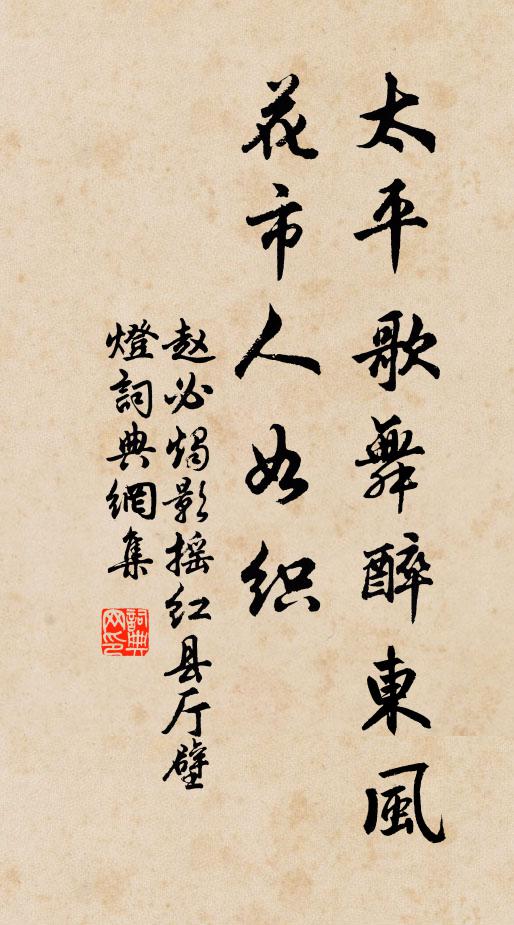 太平歌舞醉東風
花市人如织
赵必烛影摇红县厅壁
燈詞典網集
詞典
网印